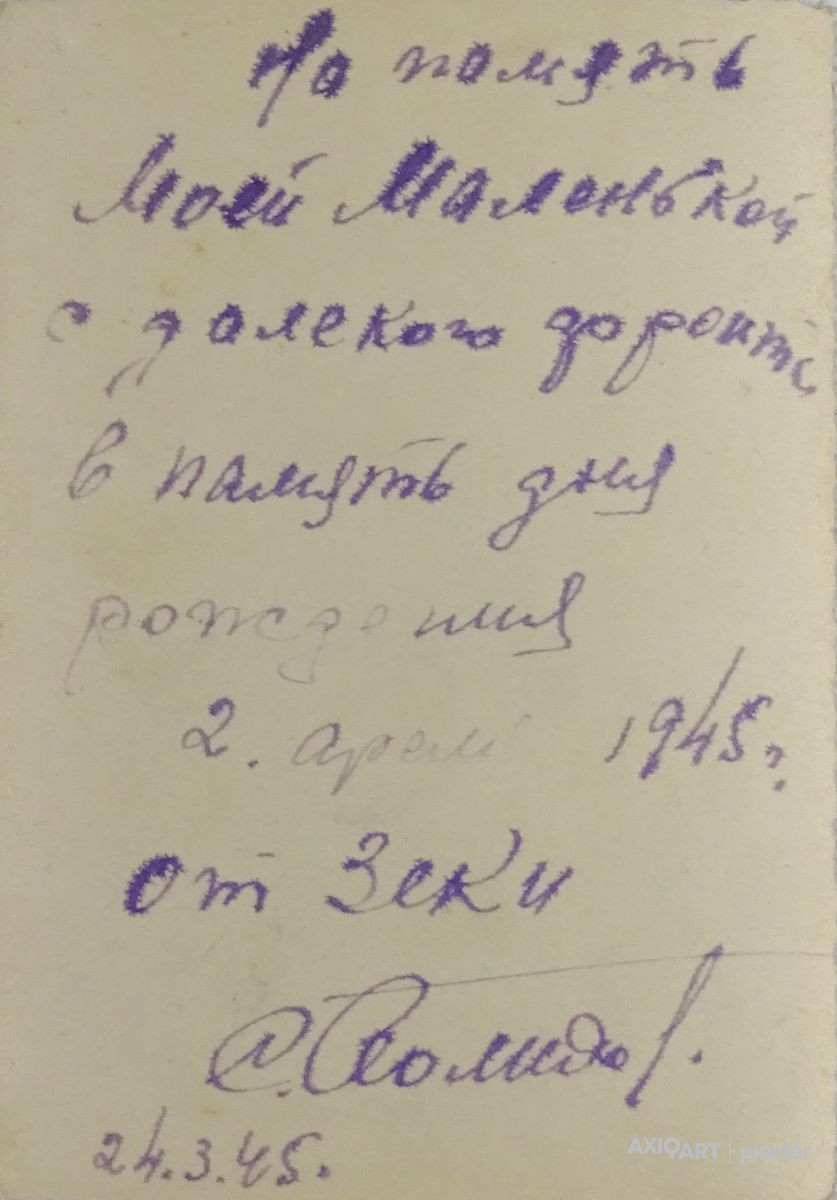 На память
Моей Маленькой
с далекого фронта
в память дня
рождения
2. апрелі 1945г.
от Зеки
24.3.45.
AXIOART